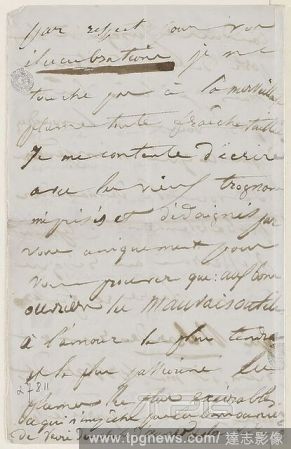 par respect pour vos
élucubrations je ne
touche pas à la merveilleuse
plume toute fraîche taillée
Je me contente d'écrire
avec les vieux trognons
méprisés et dédaignés par
vous uniquement pour
vous prouver que: au bon
ouvrier le mauvais outil
à l'amour le plus tendre
et le plus
plumes les plus exécrables
27811
ce qui n'empêche pas la
de
www.tpgnews.com/ 達志影像